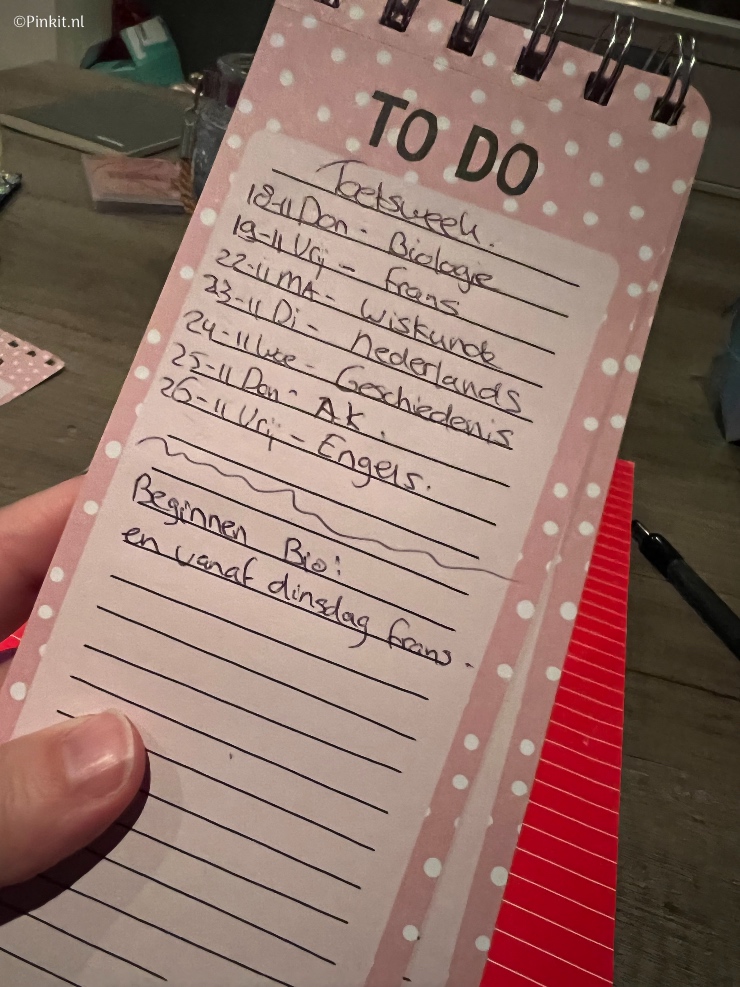 ©Pinkit.nl
TO DO
Toetsweek.
18-11 Don - Biologie
19-11 Vrij - frans
22-11 MA - Wiskunde
23-11 Di - nederlands
24-11 Woe - Geschiedenis
25-11 Don - AK.
26-11 Vrij - Engels.
Beginnen Bio!
en vanaf dinsdag frans.